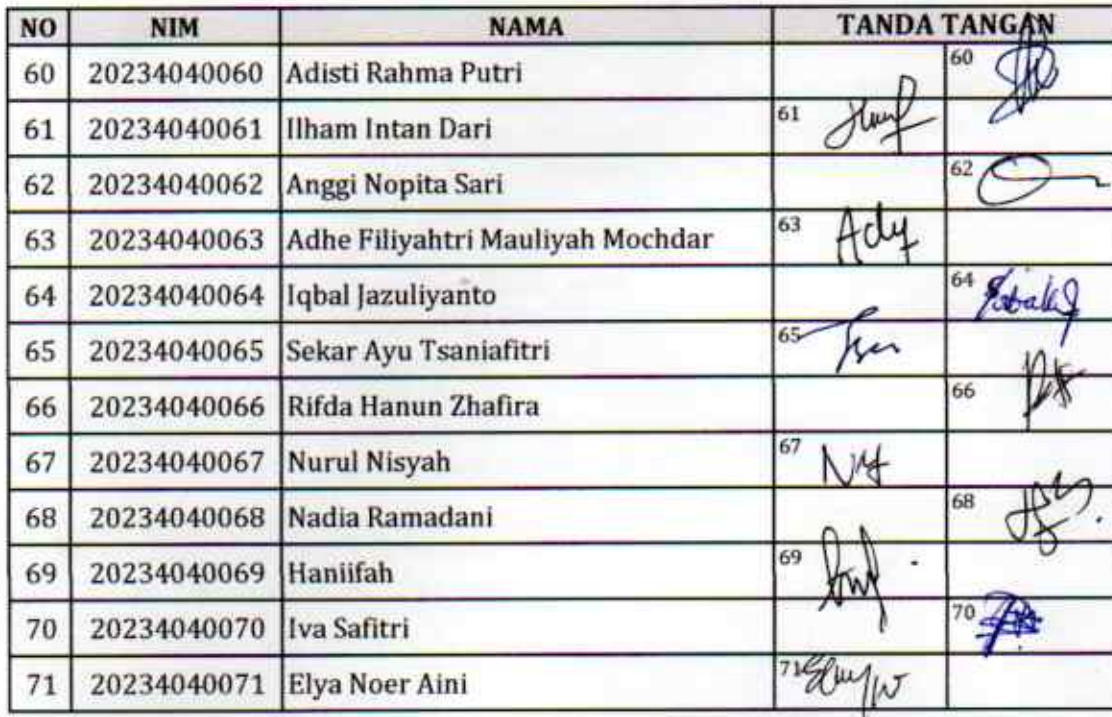 NO NIM NAMA TANDA TANGAN
60 20234040060 Adisti Rahma Putri 60
61 20234040061 Ilham Intan Dari 61
62 20234040062 Anggi Nopita Sari 62
63 20234040063 Adhe Filiyahtri Mauliyah Mochdar 63
64 20234040064 Iqbal Jazuliyanto 64
65 20234040065 Sekar Ayu Tsaniafitri 65
66 20234040066 Rifda Hanun Zhafira 66
67 20234040067 Nurul Nisyah 67
68 20234040068 Nadia Ramadani 68
69 20234040069 Haniifah 69
70 20234040070 Iva Safitri 70
71 20234040071 Elya Noer Aini 71